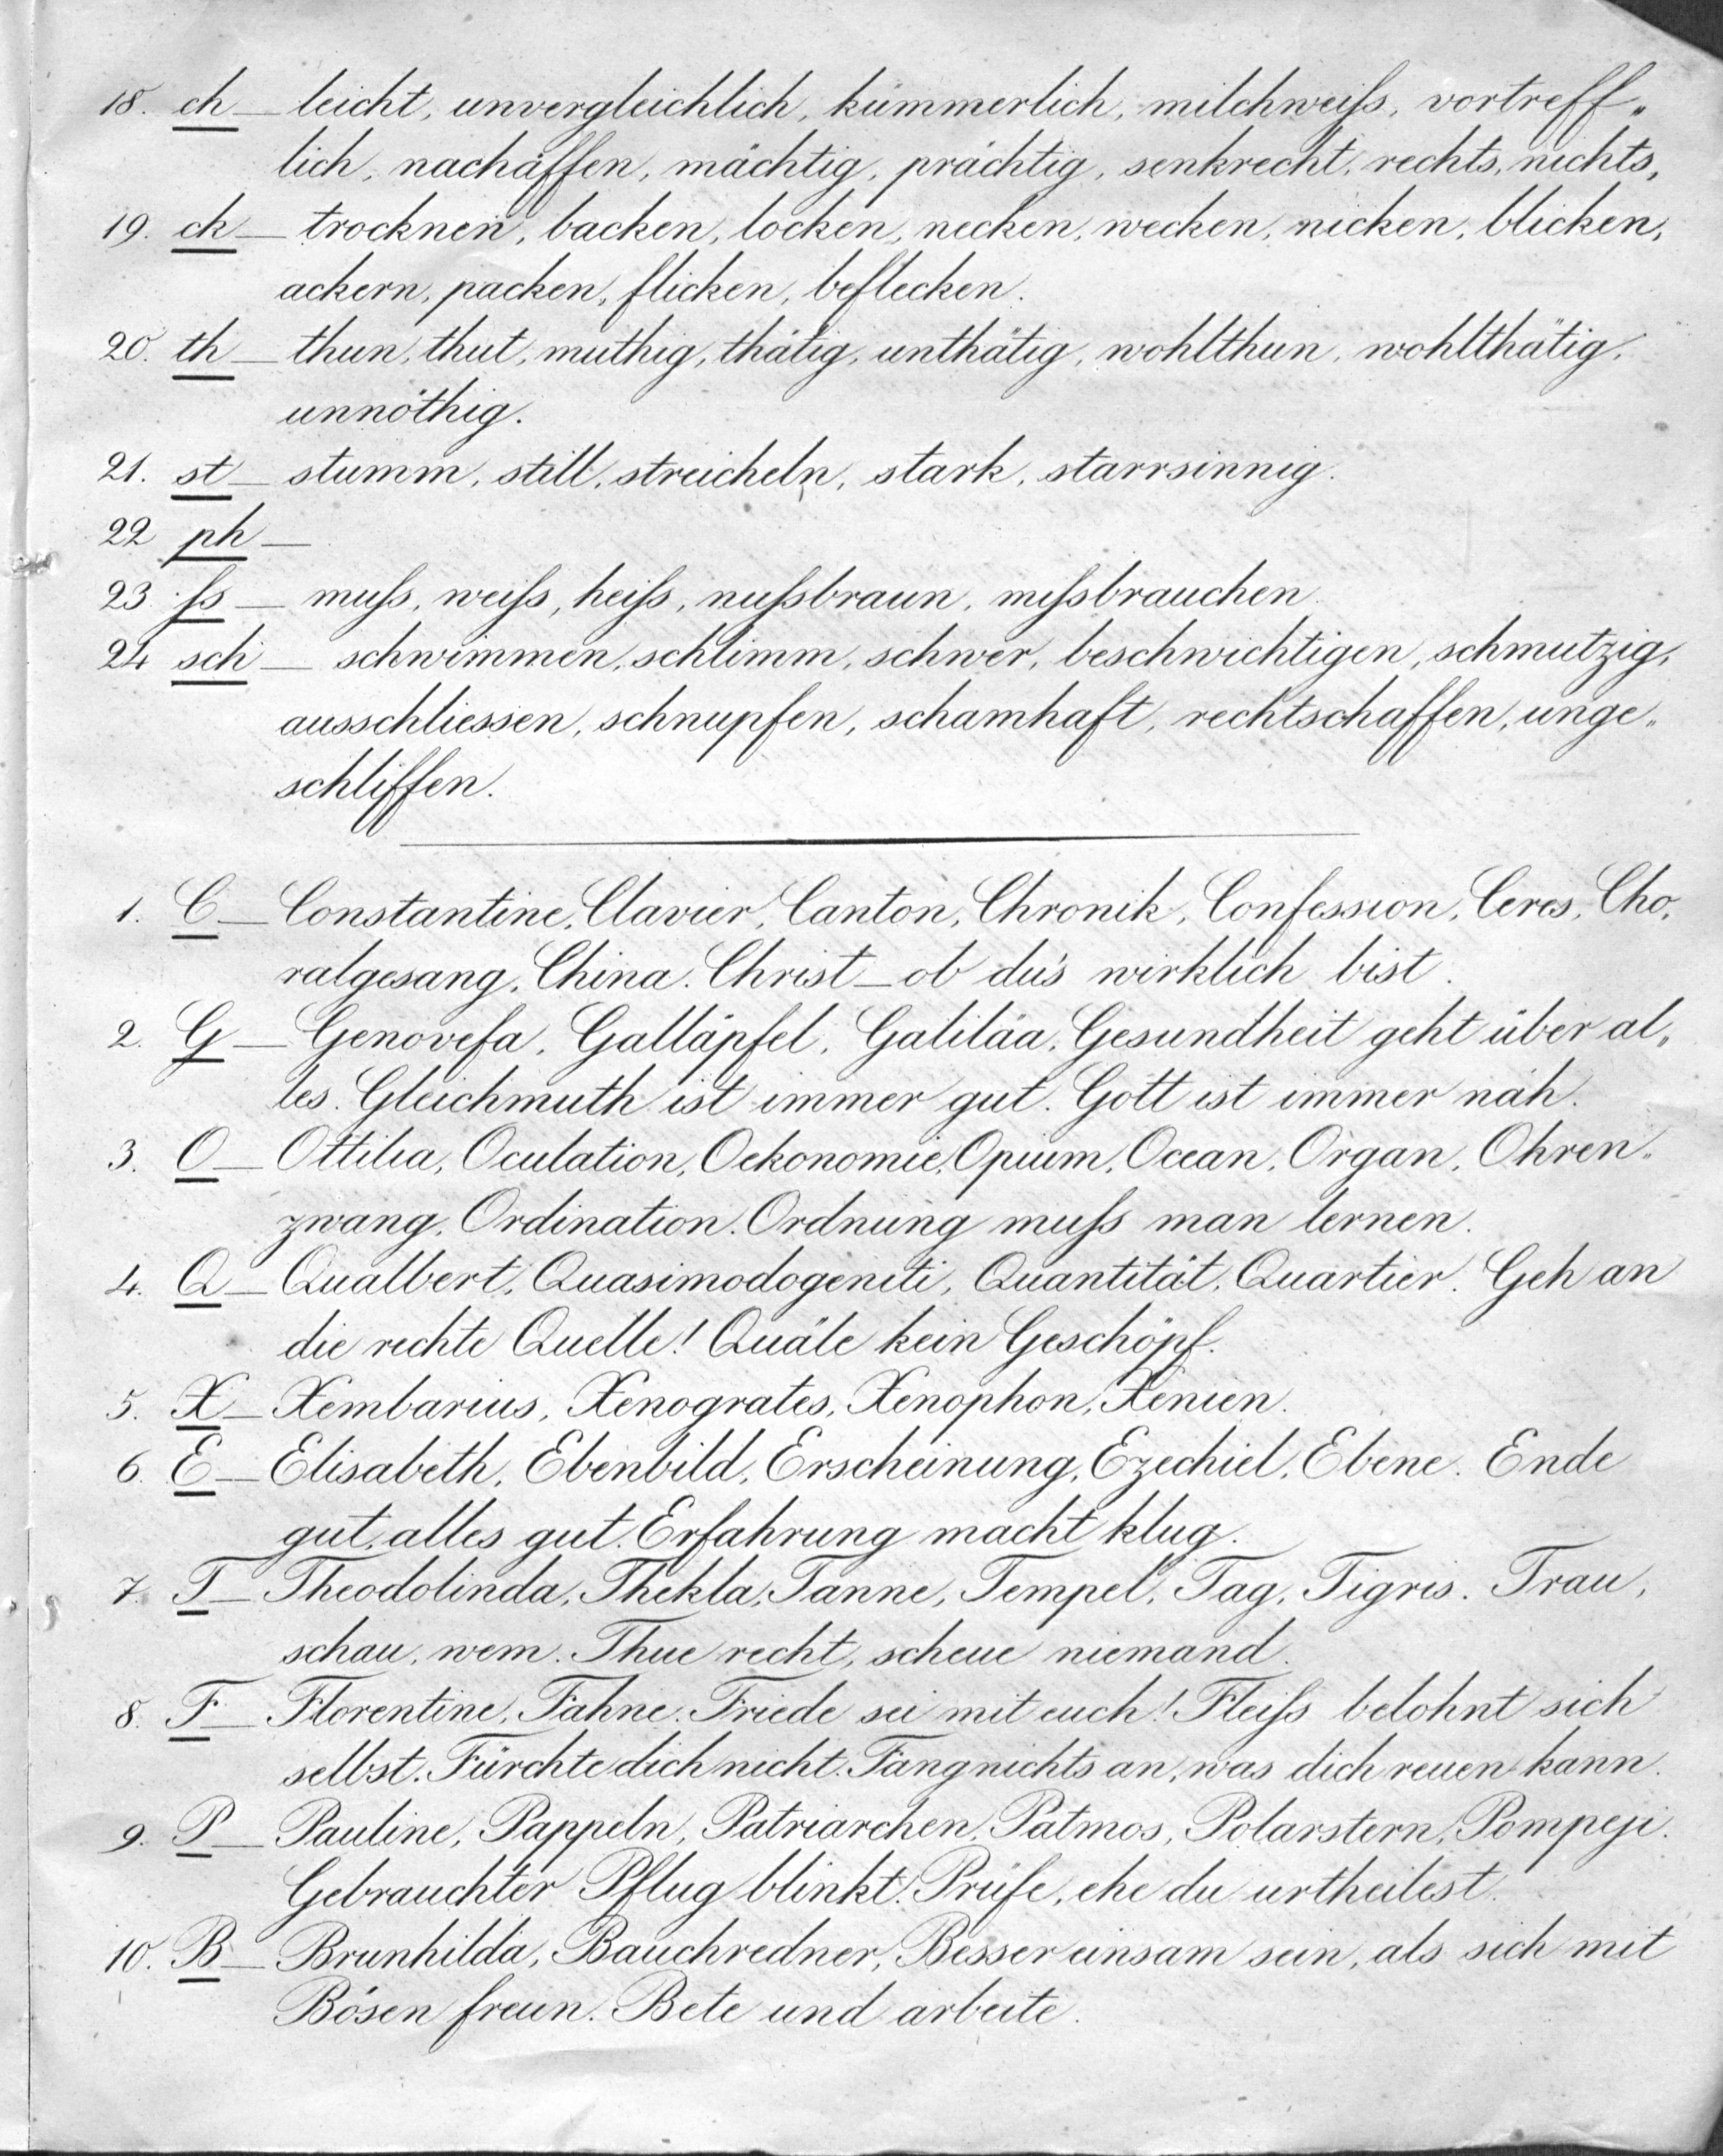 18. ch — leicht, unvergleichlich, kümmerlich, milchweiſs, vortreff„
lich, nachäffen, mächtig, prächtig, senkrecht, rechts, nichts,
19. ck — trocknen, backen, locken, necken, wecken, nicken, blicken,
ackern, packen, flicken, beflecken.
20. th — thun, thut, muthig, thätig, unthätig, wohlthun, wohlthätig,
unnöthig.
21. st — stumm, still, streicheln, stark, starrsinnig.
22 ph —
23. ſs — muſs, weiſs, heiſs, nuſsbraun, miſsbrauchen.
24 sch — schwimmen, schlimm, schwer, beschwichtigen, schmutzig,
ausschliessen, schnupfen, schamhaft, rechtschaffen, unge„
schliffen.
1. C — Constantine, Clavier, Canton, Chronik, Confession, Ceres, Cho„
ralgesang, China. Christ — ob du's wirklich bist.
2. G — Genovefa, Galläpfel, Galiläa, Gesundheit geht über al„
les. Gleichmuth ist immer gut. Gott ist immer nah.
3. O — Ottilia, Oculation, Oekonomie, Opium, Ocean, Organ, Ohren„
zwang, Ordination. Ordnung muſs man lernen.
4. Q — Qualbert, Quasimodogeniti, Quantität, Quartier. Geh an
die rechte Quelle! Quäle kein Geschöpf.
5. X — Xembarius, Xenogrates, Xenophon, Xenien.
6. E — Elisabeth, Ebenbild, Erscheinung, Ezechiel, Ebene. Ende
gut, alles gut. Erfahrung macht klug.
7. T — Theodolinda, Thekla, Tanne, Tempel, Tag, Tigris. Trau,
schau, wem. Thue recht, scheue niemand.
8. F — Florentine, Fahne. Friede sei mit euch! Fleiſs belohnt sich
selbst. Fürchte dich nicht. Fang nichts an, was dich reuen kann.
9. P — Pauline, Pappeln, Patriarchen, Patmos, Polarstern, Pompeji.
Gebrauchter Pflug blinkt. Prüfe, ehe du urtheilest.
10. B — Brunhilda, Bauchredner, Besser einsam sein, als sich mit
Bösen freun. Bete und arbeite.